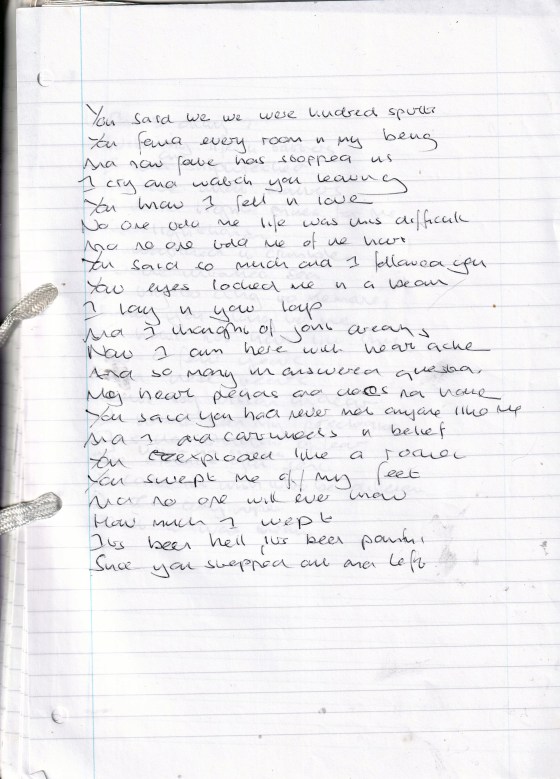 You said we we were kindred spirits
You found every room in my being
And now fate has stopped us
I cry and watch you leaving
You know I fell in love
No one told me life was this difficult
And no one told me of the hurt
You said so much and I followed you
Your eyes locked me in a beam
I lay in your lap
And I thought of your dreams
Now I am here with heart ache
And so many unanswered questions
My heart and does not have
You said you had never met anyone like me
And I did cartwheels in belief
You exploded like a rocket
You swept me off my feet
And no one will ever know
How much I wept
It's been hell, it's been painful
Since you stepped out and left